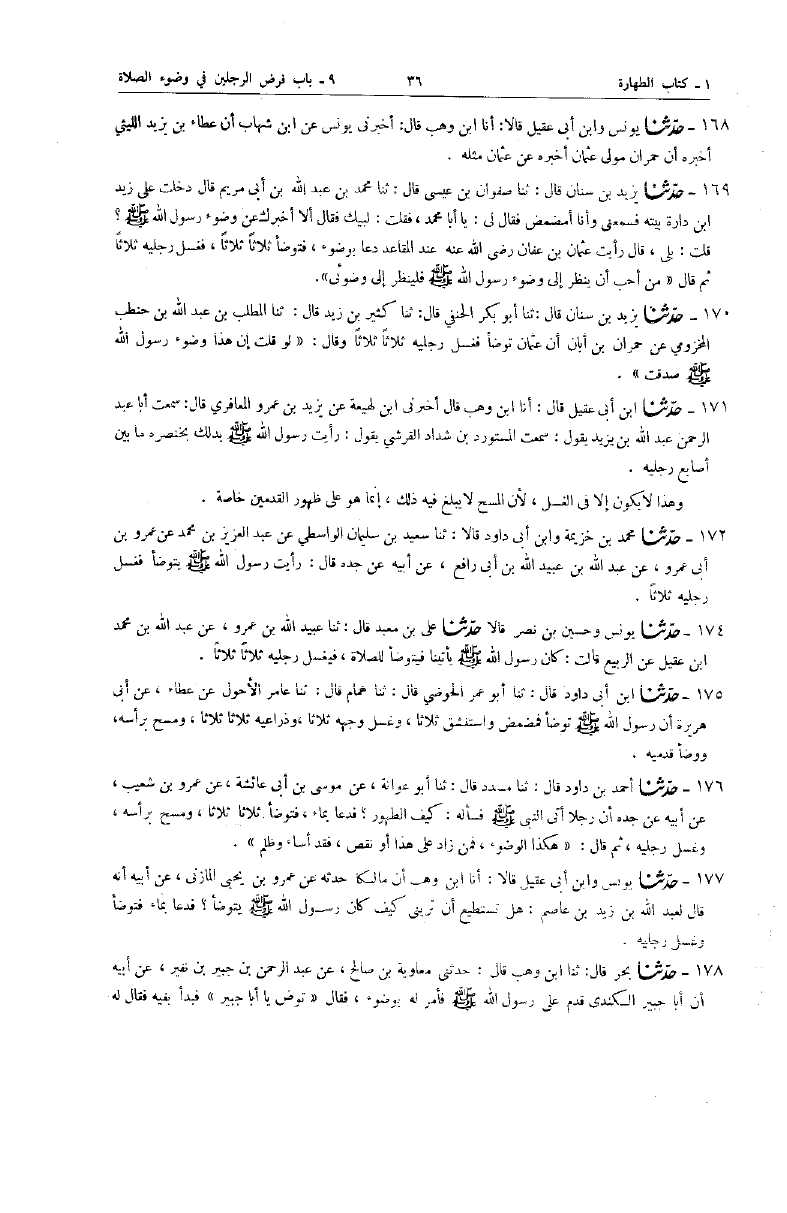 ١ - كتاب الطهارة ٣٦ ٩ - باب فرض الرجلين في وضوء الصلاة
١٦٨ - حدّثنا يونس وابن أبى عقيل قالا: أنا ابن وهب قال: أخبرنى يونس عن ابن شهاب أن عطاء بن يزيد الليثي
أخبره أن حمران مولى عثمان أخبره عن عثمان مثله .
١٦٩ - حدّثنا يزيد بن سنان قال : ثنا صفوان بن عيسى قال : ثنا محمد بن عبد الله بن أبى مريم قال دخلت على زيد
ابن دارة بيته فسمعنى وأنا أمضمض فقال لى : يا أبا محمد ، فقلت : لبيك فقال ألا أخبرك عن وضوء رسول الله ﷺ ؟
قلت : بلى ، قال رأيت عثمان بن عفان رضى الله عنه عند المقاعد دعا بوضوء ، فتوضأ ثلاثاً ثلاثاً ، فغسل رجليه ثلاثاً
ثم قال « من أحب أن ينظر إلى وضوء رسول الله ﷺ فلينظر إلى وضوئى».
١٧٠ - حدّثنا يزيد بن سنان قال :ثنا أبو بكر الحنفي قال: ثنا كثير بن زيد قال : ثنا المطلب بن عبد الله بن حنطب
المخزومي عن حمران بن أبان أن عثمان توضأ فغسل رجليه ثلاثاً ثلاثاً وقال : « لو قلت إن هذا وضوء رسول الله
ﷺ صدقت » .
١٧١ - حدّثنا ابن أبى عقيل قال : أنا ابن وهب قال أخبرنى ابن لهيعة عن يزيد بن عمرو المعافري قال: سمعت أبا عبد
الرحمن عبد الله بن يزيد يقول : سمعت المستورد بن شداد القرشي يقول : رأيت رسول الله ﷺ يدلك بخنصره ما بين
أصابع رجليه .
وهذا لايكون إلا فى الغسل ، لأن المسح لايبلغ فيه ذلك ، إنما هو على ظهور القدمين خاصة .
١٧٢ - حدّثنا محمد بن خزيمة وابن أبى داود قالا : ثنا سعيد بن سليمان الواسطي عن عبد العزيز بن محمد عن عمرو بن
أبى عمرو ، عن عبد الله بن عبيد الله بن أبى رافع ، عن أبيه عن جده قال : رأيت رسول الله ﷺ يتوضأ فغسل
رجليه ثلاثاً .
١٧٤ - حدّثنا يونس وحسين بن نصر قالا حدّثنا على بن معبد قال : ثنا عبيد الله بن عمرو ، عن عبد الله بن محمد
ابن عقيل عن الربيع قالت : كان رسول الله ﷺ يأتينا فيتوضأ للصلاة ، فيغسل رجليه ثلاثاً ثلاثاً .
١٧٥ - حدّثنا ابن أبى داود قال : ثنا أبو عمر الحوضي قال : ثنا همام قال : ثنا عامر الأحول عن عطاء ، عن أبى
هريرة أن رسول الله ﷺ توضأ فمضمض واستنشق ثلاثا ، وغسل وجهه ثلاثا ،وذراعيه ثلاثا ثلاثا ، ومسح برأسه،
ووضأ قدميه .
١٧٦ - حدّثنا أحمد بن داود قال : ثنا مسدد قال : ثنا أبو عوانة ، عن موسى بن أبى عائشة ، عن عمرو بن شعيب ،
عن أبيه عن جده أن رجلا أتى النبى ﷺ فسأله : كيف الطهور ؟ فدعا بماء ، فتوضأ ثلاثا ثلاثا ، ومسح برأسه ،
وغسل رجليه ، ثم قال : « هكذا الوضوء ، فمن زاد على هذا أو نقص ، فقد أساء وظلم » .
١٧٧ - حدّثنا يونس وابن أبى عقيل قالا : أنا ابن وهب أن مالكا حدثه عن عمرو بن يحيى المازنى ، عن أبيه أنه
قال لعبد الله بن زيد بن عاصم : هل تستطيع أن ترينى كيف كان رسول الله ﷺ يتوضأ ؟ فدعا بماء فتوضأ
وغسل رجليه .
١٧٨ - حدّثنا بحر قال: ثنا ابن وهب قال : حدثنى معاوية بن صالح ، عن عبد الرحمن بن جبير بن نفير ، عن أبيه
أن أبا جبير الكندى قدم على رسول الله ﷺ فأمر له بوضوء ، فقال « توض يا أبا جبير » فبدأ بفيه فقال له